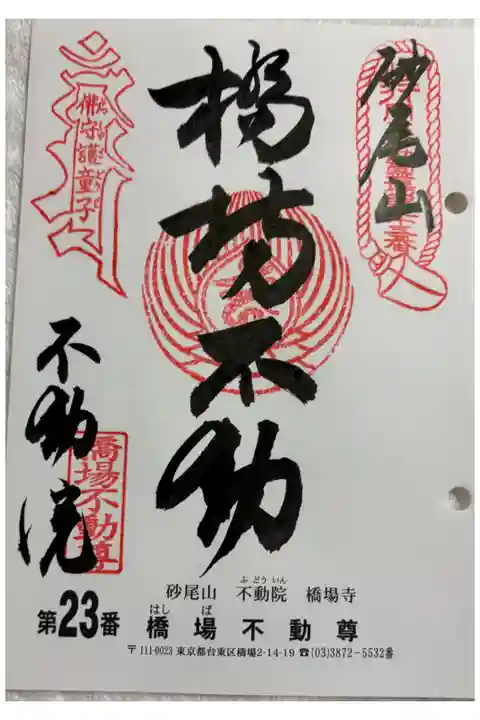 砂尾山
橋場不動
不動院
佛守護童子
橋場不動尊
砂尾山 不動院 橋場寺
ふどういん
第23番 橋場不動尊
はし ば
〒111-0023 東京都台東区橋場2-14-19 ☎(03)3872-5532番